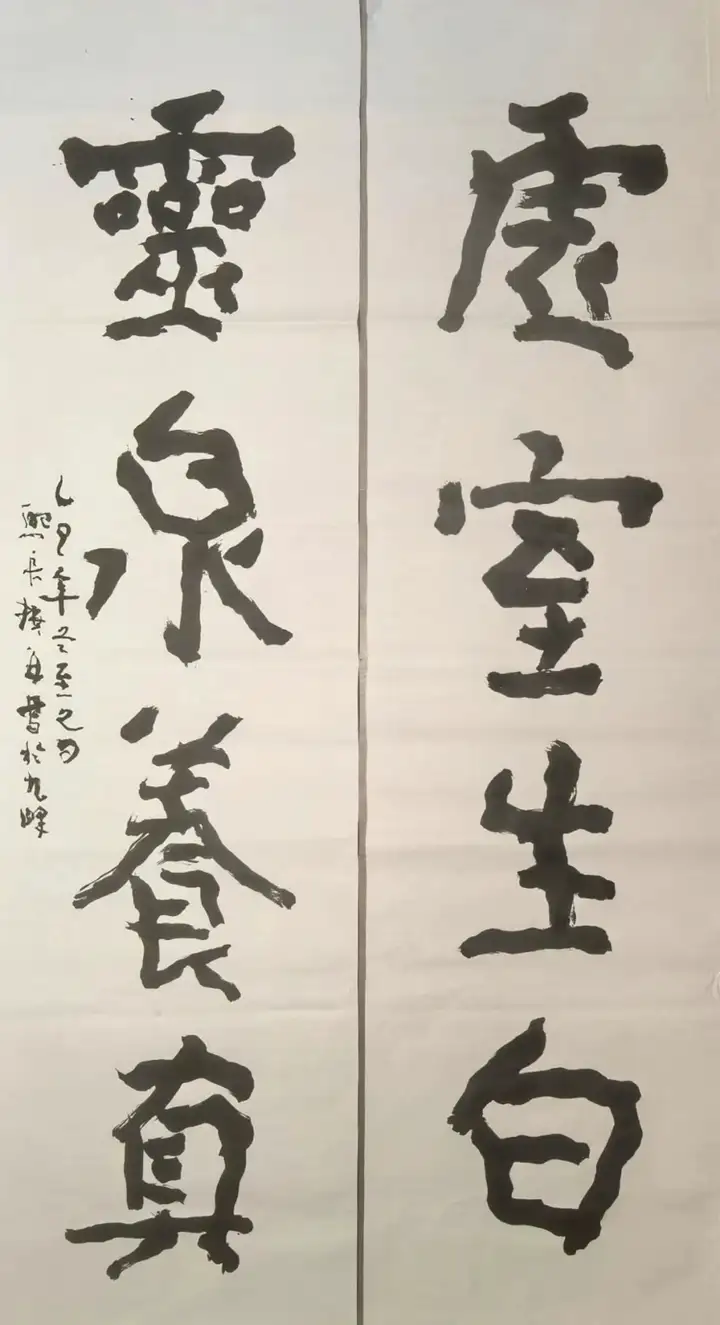 虛室生白
靈泉養真
乙巳年冬至之日
熙长 書於九峰